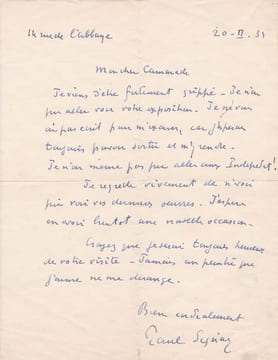 14 rue de l'abbaye 20-II-35
Mon cher Camarade
Je viens d'être fortement grippé - Je n'ai
pu aller voir votre exposition. Je ne vous
ai pas écrit pour m'excuser, car j'espérais
toujours pouvoir sortir et m'y rendre.
Je n'ai même pas pu aller aux Indépdts!
Je regrette vivement de n'avoir
pu voir vos derniers oeuvres. J'espère
en avoir bientot une nouvelle occasion.
Croyez que je serai toujours heureux
de votre visite - Jamais un peintre que
j'aime ne me dérange.
Bien cordialement
Paul Signac